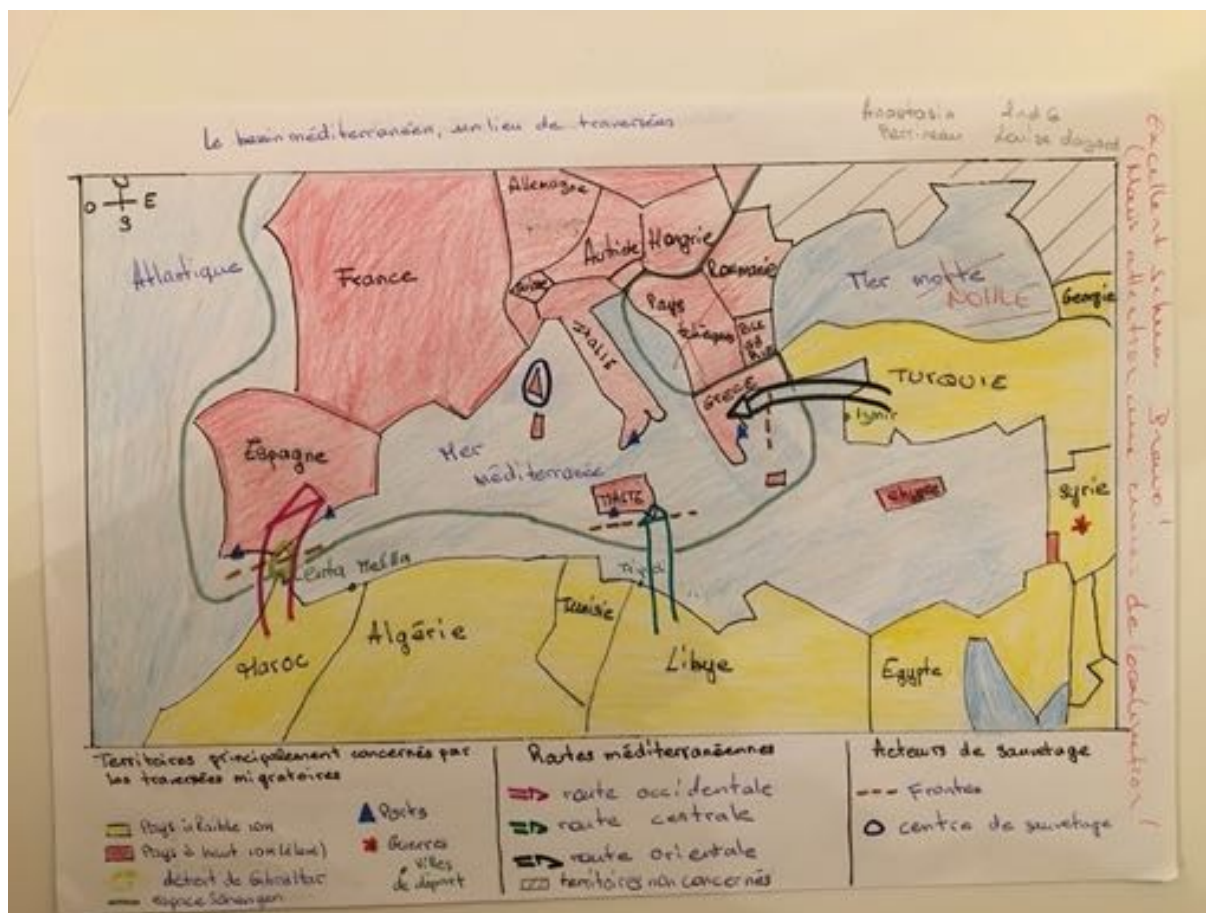 Le bassin méditerranéen, un lieu de traversées
Anastasia 2nd 6
Perrineau Louise dagard
Excellent schéma Bravo!
(Mais attention aux de localisation!
O E
S
Atlantique
France
Allemagne
Autriche
Hongrie
Roumanie
Suisse
Italie
Pays
GRECE
Mer morte
NOIRE
Georgie
TURQUIE
Izmir
Espagne
Mer
méditerranée
MALTE
Chypre
Syrie
Ceuta Melilla
Maroc
Algérie
Tunisie
Libye
Egypte
Territoires principalement concernés par
les traversées migratoires
Pays à faible IDH
Pays à haut IDH (élevé)
détroit de Gibraltar
espace Schengen
Ports
Guerres
villes
de départ
Routes méditerranéennes
route occidentale
route centrale
route orientale
territoires non concernés
Acteurs de sauvetage
Frontex
centre de sauvetage